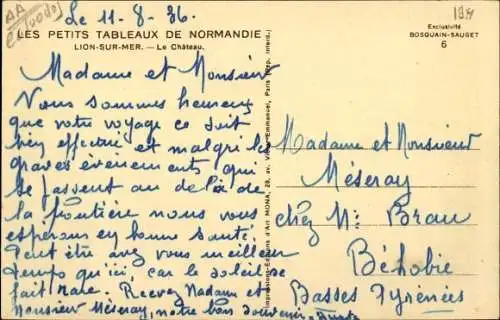 Le 11-8-36.
LES PETITS TABLEAUX DE NORMANDIE
LION-SUR-MER. — Le Château.
Exclusivité
BOSQUAIN-SAUGET
6
Madame et Monsieur
Nous sommes heureux
que votre voyage ce soit
bien effectué et malgré les
graves évènements qui
se passent au delà de
la frontière nous vous
esperons en bonne santé.
Peut être avez vous meilleur
temps qu'ici, car le soleil se
fait rare. Recevez Madame et
Monsieur Méseray, notre bon souvenir.
Madame et Monsieur
Méseray
chez Mr Brau
Béhobie
Basses Pyrénées